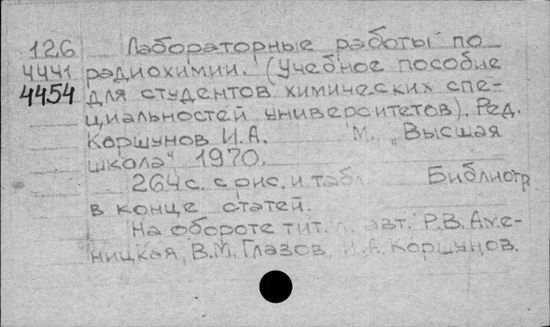 126 Лабораторные работы по
4441 радиохимии. (Учебное пособие
4454 для студентов химических спе-
циальностей университетов). Ред.
Коршунов И.А. М., „Высшая
школа" 1970.
264 с. с рис. и табл. Библиогр
в конце статей.
На обороте тит. л. авт. Р.В. Аме-
ницкая, В.М. Глазов, И.А. Коршунов.